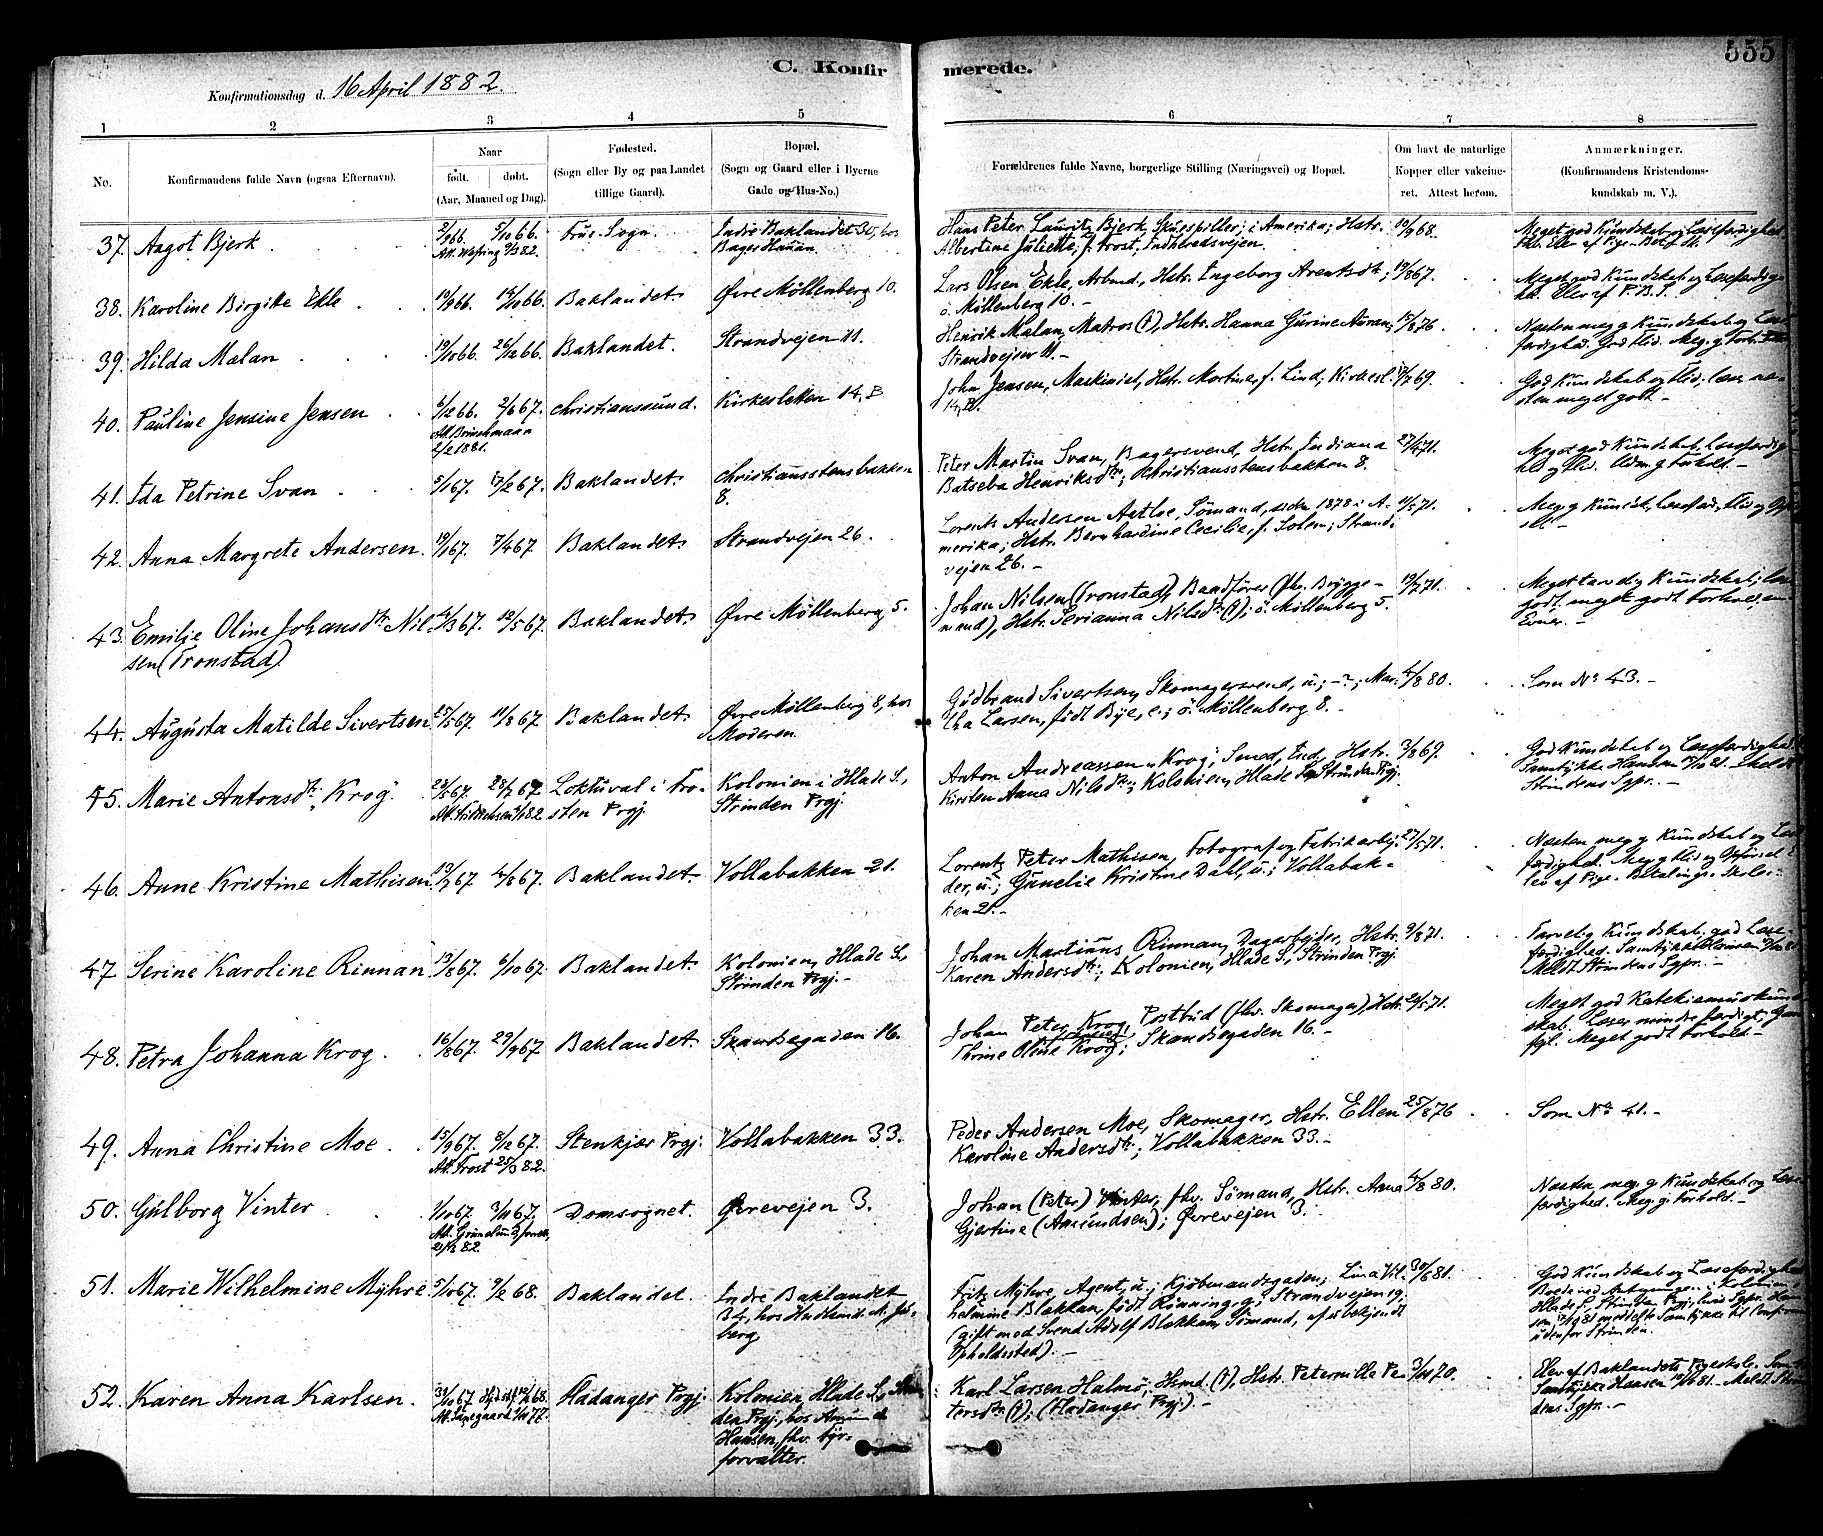 555
C. Konfirmerede.
Konfirmationsdag d. 16 April 1882.
1 2 3 4 5 6 7 8
No.
Konfirmandens fulde Navn (ogsaa Efternavn).
Naar
født. døbt.
(Aar, Maaned og Dag).
Fødested.
(Sogn eller By og paa Landet
tillige Gaard).
Bopæl.
(Sogn og Gaard eller i Byerne
Gade og Hus-No.)
Forældrenes fulde Navne, borgerlige Stilling (Næringsvei) og Bopæl.
Om havt de naturlige
Kopper eller vakcine-
ret. Attest herom.
Anmærkninger.
(Konfirmandens Kristendoms-
kundskab m. V.).
37. Aagot Bjerk
Frue Sogn
Indre Baklandet 30, hos
Bager Hauan
Hans Peter Lauritz Bjerk, Skuespiller, i Amerika; Hstr.
Albertine Juliette, f. Frost, Indherredsvejen.
Meget god Kundskab og Læsefærdighed
38. Karoline Birgitte Ekle
Baklandet
Øvre Möllenberg 10.
Lars Olsen Ekle, Arbmd., Hstr. Ingeborg Arentsdtr;
ö. Möllenberg 10.
19/8 67.
Meget god Kundskab og Læsefærdig-
39. Hilda Malan
19/10 66. 26/12 66.
Baklandet.
Strandvejen 11.
Henrik Malan, Matros (†), Hstr. Hanna Gurine Auran,
Strandvejen 11.
Næsten meg g Kundskab og Læse-
færdighed. God Flid. Meg. g Forh.
40. Pauline Jensine Jensen
6/12 66. 2/6 67.
Att. Brinchmann
2/2 1881.
Christianssund.
Kirkesletten 14, B
John Jensen, Maskinist, Hstr. Martine, f. Lind, Kirkesl.
14, B.
God Kundskab og Flid; læs. næ-
sten meget godt.
41. Ida Petrine Svan
5/1 67. 17/2 67.
Baklandet
Christiansstensbakken
8.
Peter Martin Svan, Bagersvend, Hstr. Indiana
Batseba Henriksdtr; Christiansstensbakken 8.
27/4 71.
Meget god Kundskab, Læsefærdig-
hed og Flid. Udm. g Forhold.
42. Anna Margrete Andersen
19/1 67. 7/4 67
Baklandet
Strandvejen 26.
Lorents Andersen Aftloe, Sömand, siden 1878 i A-
merika; Hstr. Bernhardine Cecilie, f. Solem; Strand-
vejen 26.
11/5 71.
43. Emilie Oline Johansdtr Nil-
sen (Tronstad)
4/3 67. 12/5 67.
Baklandet
Øvre Möllenberg 5.
Johan Nilsen (Tronstad), Baadförer (fhv. Brygge-
mand), Hstr. Serianna Nilsdtr (†); ö. Möllenberg 5.
19/7 71.
Meget tarvelig Kundskab; læse
godt, meget godt Forhold,
Evner.
44. Augusta Matilde Sivertsen
25/5 67. 11/8 67.
Baklandet
Øvre Möllenberg 8, hos
Moderen
Gudbrand Sivertsen, Skomagersvend, u.; -?; Mar-
tha Larsen, födt Bye, e.; ö. Möllenberg 8.
4/8 80.
Som No 43.
45. Marie Antonsdtr Krog
23/5 67. 28/7 67.
Loktuval i Fro-
sten Prgj.
Kolonien i Hlade S.,
Strinden Prgj.
Anton Andreassen Krog, Smed, Ind., Hstr.
Kirsten Anna Nilsdtr; Kolonien, Hlade S., Strinden Prgj.
3/8 69.
God Kundskab og Læsefærdighed.
Samtykke Hansen 17/10 81. Meldt
Strindens Sgpr.
46. Anne Kristine Mathisen
19/7 67. 4/8 67.
Baklandet.
Vollabakken 21.
Lorentz Peter Mathisen, Fotograf og Fabrikarbej-
der, u.; Gunelie Kristine Dahl, u.; Vollabak-
ken 21.
27/5 71.
Næsten meg g Kundskab og Læse-
færdighed. Meg g Flid og Opförsel. E-
lev af Pige-Betalings-Skole.
47 Serine Karoline Rinnan
13/8 67. 6/10 67.
Baklandet.
Kolonien, Hlade S.,
Strinden Prgj.
Johan Martinus Rinnan, Dagarbejder, Hstr.
Karen Andersdtr; Kolonien, Hlade S., Strinden Prgj
9/8 71.
Tarvelig Kundskab, god Læse-
færdighed. Samtykke Hansen 17/10 81
Meldt Strindens Sgpr.
48. Petra Johanna Krog
16/8 67. 29/9 67.
Baklandet.
Skandsegaden 16.
Johan Peter Krog, Postbud (fhv. Skomager), Hstr.
Thrine Oline Krog; Skandsegaden 16.
Meget god Katekismuskund-
skab. Læser mindre færdigt;
Meget godt Forhold.
49. Anna Christine Moe
15/9 67. 8/12 67.
Att. Frost 25/3 82.
Stenkjær Prgj.
Vollabakken 33.
Peder Andersen Moe, Skomager, Hstr. Ellen
Karoline Andersdtr; Vollabakken 33.
25/8 76
Som No 41.
50. Gulborg Vinter
1/10 67. 3/11 67.
Domsognet.
Øvrevejen 3.
Johan (Peter) Vinter, fhv. Sömand, Hstr. Anna
Gjertine (Amundsen); Øvrevejen 3.
4/8 80.
Næsten meg g Kundskab og Læse-
færdighed. Meg g Forhold.
51. Marie Wilhelmine Myhre
5/10 67. 9/2 68.
Baklandet.
Indre Baklandet
34, hos
berg
Fritz Myhre, Agent, u.; Kjöbmandsgaden; Lina Vil-
helmine Blekkan, födt Rönning, g.; Strandvejen 19
(gift med Svend Adolf Blekkan, Sömand, af ubekjendt
Opholdssted).
30/6 81.
God Kundskab og Læsefærdighed
Hlade S., Strinden Prgj., hvis Sgpr. Han-
sen 17/9 81 meddelte Samtykke til Confirm.
udenfor Strinden.
52. Karen Anna Karlsen
Fladanger Prgj.
Kolonien, Hlade S., Strin-
den Prgj., hos Amund
Hansen, fhv. Fyr-
forvalter.
Karl Larsen Halmö, Hsmd. (†), Hstr. Peternille Pe-
tersdtr (†); (Fladanger Prgj.)
3/10 70.
Elev af Baklandets Pigeskole.
Samtykke Hansen 17/10 81. Meldt Strin-
dens Sgpr.